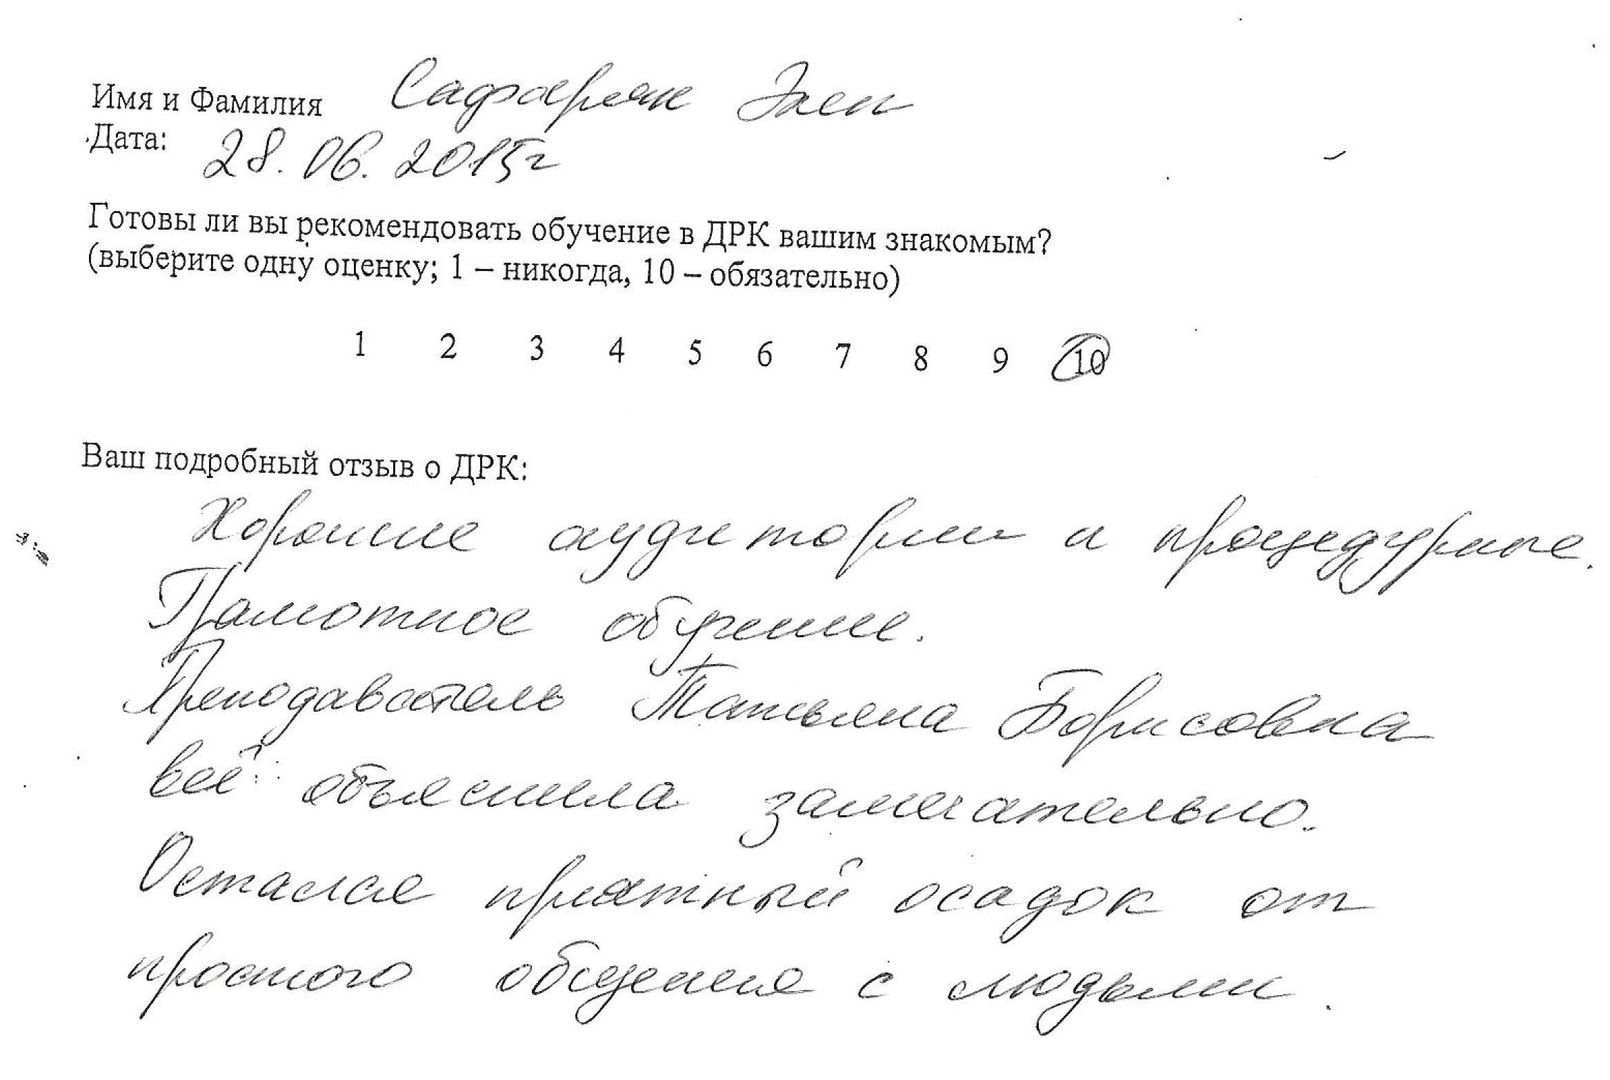 Имя и Фамилия Сафарян Элен
Дата: 28.06.2015г
Готовы ли вы рекомендовать обучение в ДРК вашим знакомым?
(выберите одну оценку; 1 – никогда, 10 – обязательно)
1 2 3 4 5 6 7 8 9 10
Ваш подробный отзыв о ДРК:
Хорошие аудитории и процедурные.
Грамотное обучение.
Преподаватель Татьяна Борисовна
всё объяснила замечательно.
Остался приятный осадок от
простого общения с людьми.